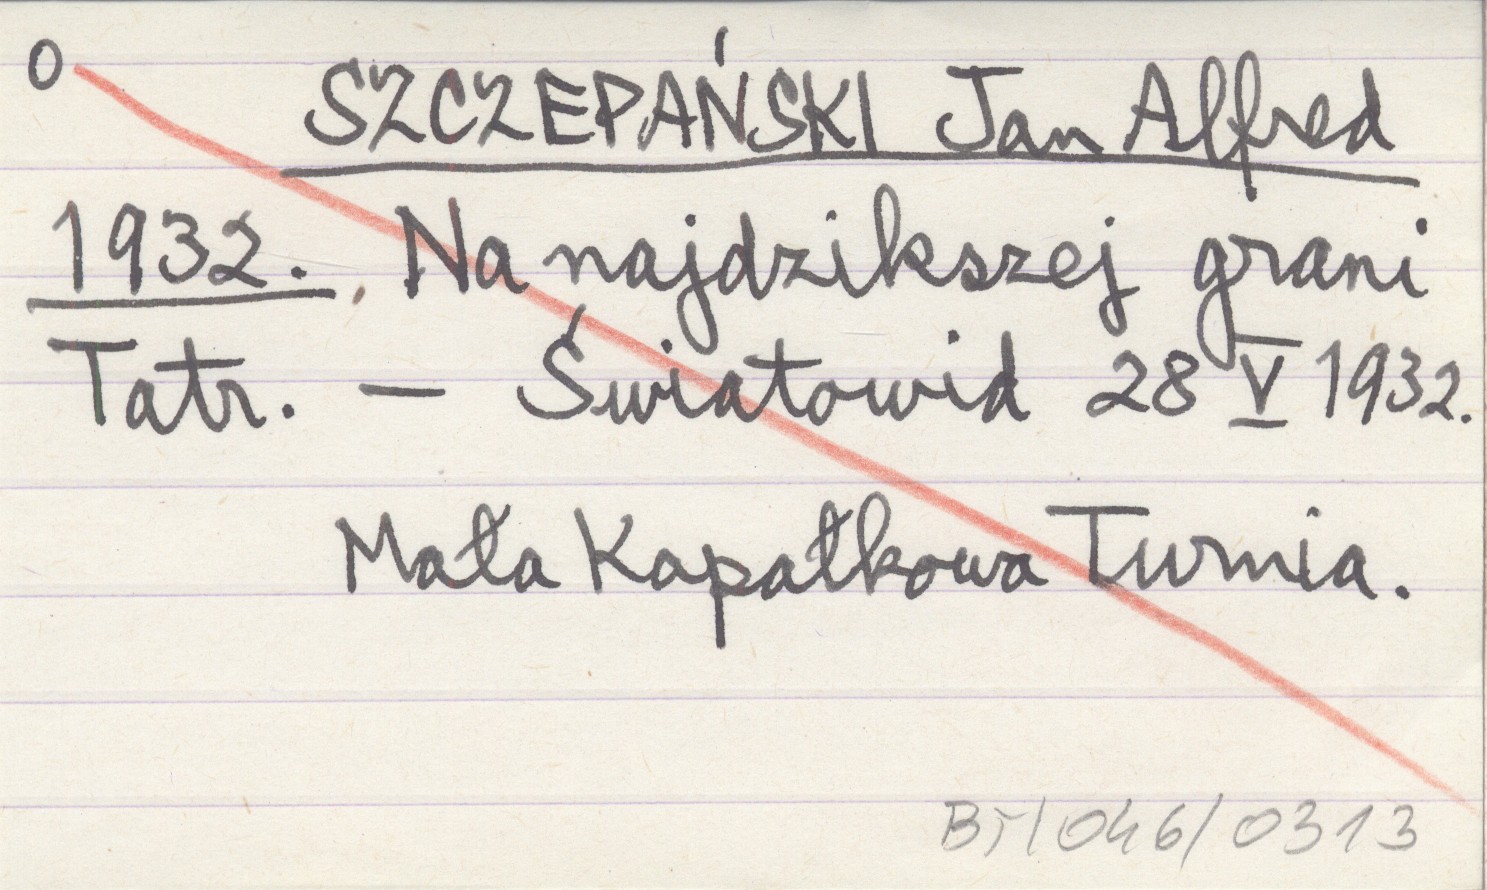 O SZCZEPAŃSKI Jan Alfred
1932. Na najdzikszej grani
Tatr. — Światowid 28 V 1932.
Mała Kapałkowa Turnia.
/046/0313